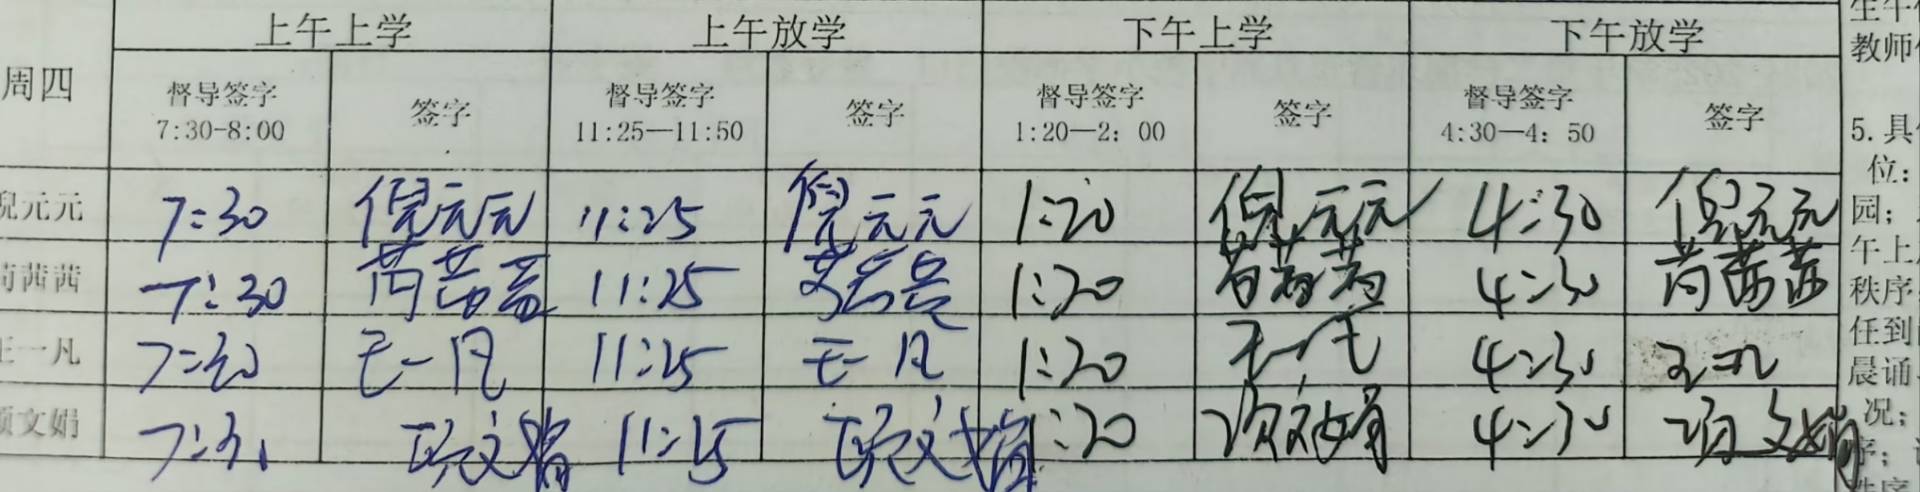 上午上学 上午放学 下午上学 下午放学
周四 督导签字 签字 督导签字 签字 督导签字 签字 督导签字 签字
7:30-8:00 11:25—11:50 1:20—2: 00 4:30—4: 50
倪元元 7:30 倪元元 11:25 倪元元 1:20 倪元元 4:30 倪元元
茜茜 7:30 11:25 1:20 4:30
王一凡 7:30 王一凡 11:25 王一凡 1:20 王一凡 4:30
文娟 7:30 文娟 11:25 文娟 1:20 项文娟 4:30 项文娟
教师
5.具
位:
园;
午上
秩序
任到
晨诵
况;
序;